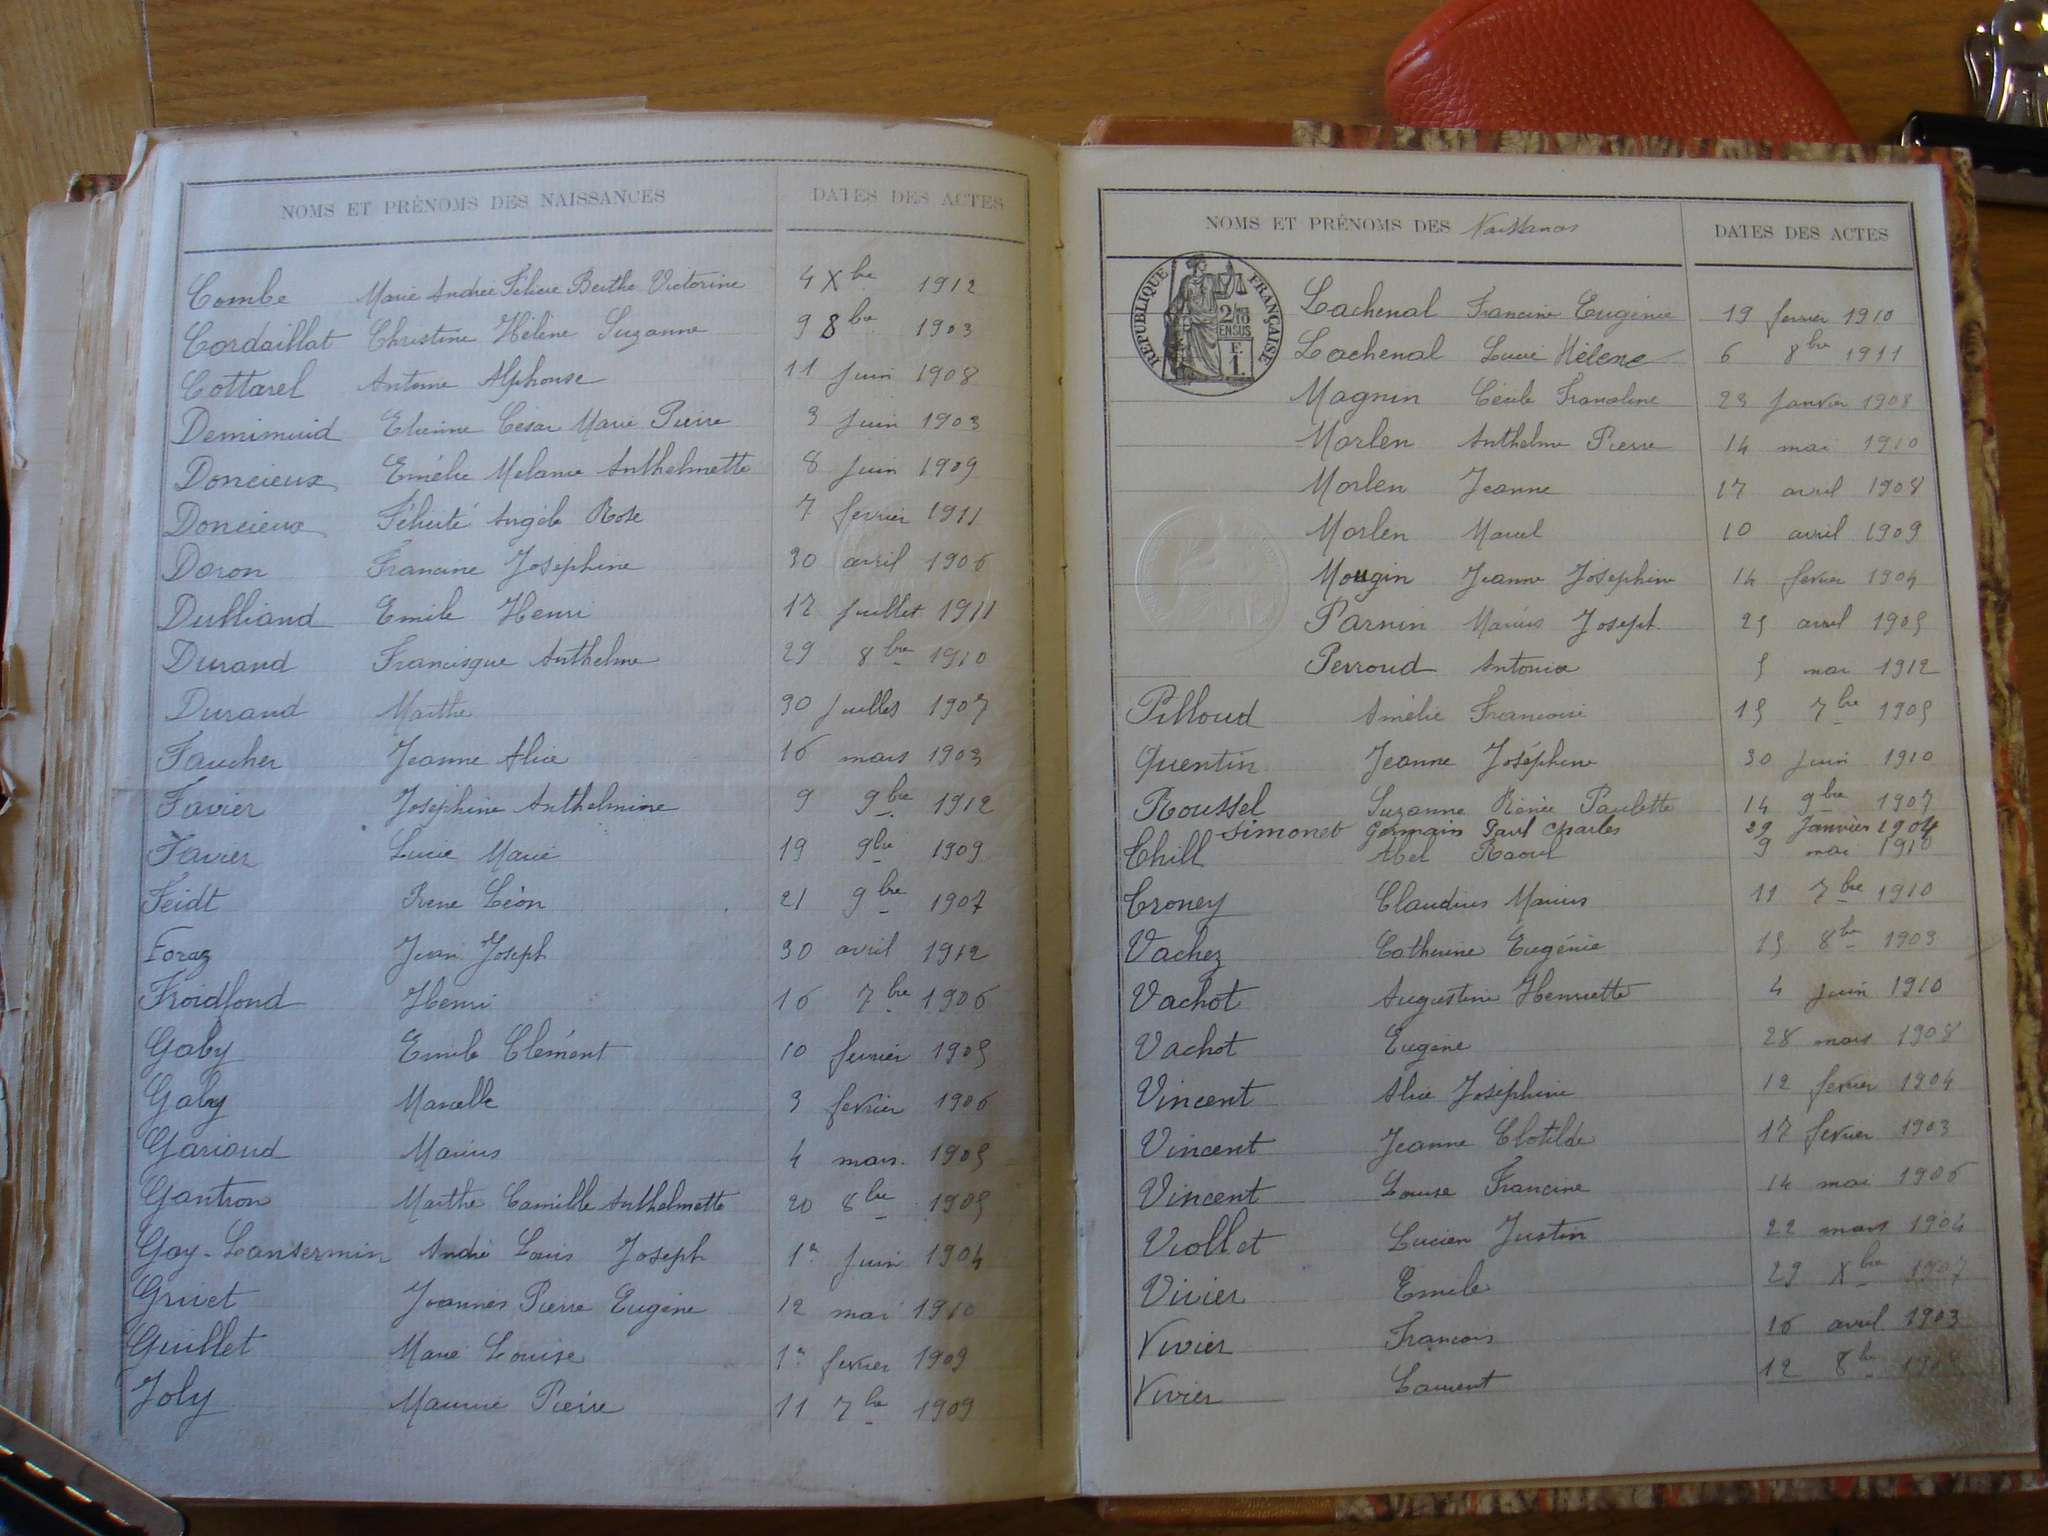 NOMS ET PRÉNOMS DES NAISSANCES DATES DES ACTES
Combe Marie Andrée Félicie Berthe Victorine 4 Xbre 1912
Cordaillat Christine Hélène Suzanne 9 8bre 1903
Cottarel Antoine Alphonse 11 juin 1908
Demimuid Etienne César Marie Pierre 3 juin 1903
Doncieux Emélie Melanie Anthelmette 8 juin 1909
Doncieux Félicité Angèle Rose 7 fevrier 1911
Doron Francine Joséphine 30 avril 1906
Dulliand Emile Henri 12 juillet 1911
Durand Francisque Anthelme 29 8bre 1910
Durand Marthe 30 juillet 1907
Faucher Jeanne Alice 16 mars 1903
Favier Joséphine Anthelmine 9 9bre 1912
Favier Lucie Marie 19 9bre 1909
Feidt Rene Léon 21 9bre 1907
Foraz Jean Joseph 30 avril 1912
Froidfond Henri 16 7bre 1906
Gaby Emile Clément 10 fevrier 1905
Gaby Marcelle 3 fevrier 1906
Gariaud Marius 4 mars 1905
Gantron Marthe Camille Anthelmette 20 8bre 1905
Gay-Lansermin André Louis Joseph 1er juin 1904
Gruet Joannes Pierre Eugène 12 mai 1910
Guillet Marie Louise 1er fevrier 1909
Joly Maurice Pierre 11 7bre 1909
NOMS ET PRÉNOMS DES Naissances DATES DES ACTES
RÉPUBLIQUE FRANÇAISE
2/10
EN SUS
F.
1.
Lachenal Francine Eugénie 19 fevrier 1910
Lachenal Lucie Hélène 6 8bre 1911
Magnin Cécile Francline 23 janvier 1908
Morlen Anthelme Pierre 14 mai 1910
Morlen Jeanne 17 avril 1908
Morlen Marcel 10 avril 1909
Mougin Jeanne Joséphine 14 fevrier 1904
Parnin Marius Joseph 25 avril 1905
Perroud Antonia 5 mai 1912
Pilloud Amélie Francoise 15 7bre 1905
Quentin Jeanne Joséphine 30 juin 1910
Roussel Suzanne Rénée Paulette 14 9bre 1907
Simonet Germain Paul Charles 29 Janvier 1904
Thill Abel Raoul 9 mai 1910
Troney Claudius Marius 11 7bre 1910
Vachez Catherine Eugénie 15 8bre 1903
Vachot Augustine Henriette 4 juin 1910
Vachot Eugène 28 mars 1908
Vincent Alice Joséphine 12 fevrier 1904
Vincent Jeanne Clotilde 17 fevrier 1903
Vincent Louise Francine 14 mai 1906
Viollet Lucien Justin 22 mars 1904
Vivier Emile 29 Xbre 1907
Vivier Francois 16 avril 1903
Vivier Laurent 12 8bre